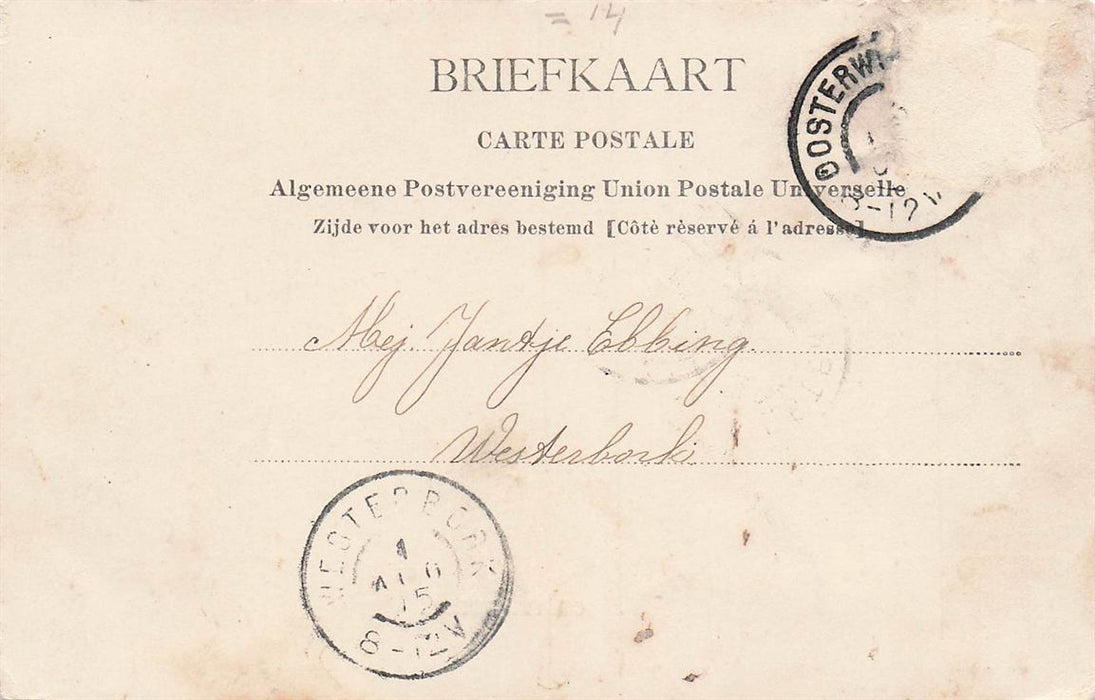 = 14
BRIEFKAART
CARTE POSTALE
Algemeene Postvereeniging Union Postale Universelle
Zijde voor het adres bestemd [Côtè rèservé á l'adresse]
OOSTERWI
8-12V
Mej. Jantje Ebbing
Westerbork
WESTERBORK
1
AUG
05
8-12V